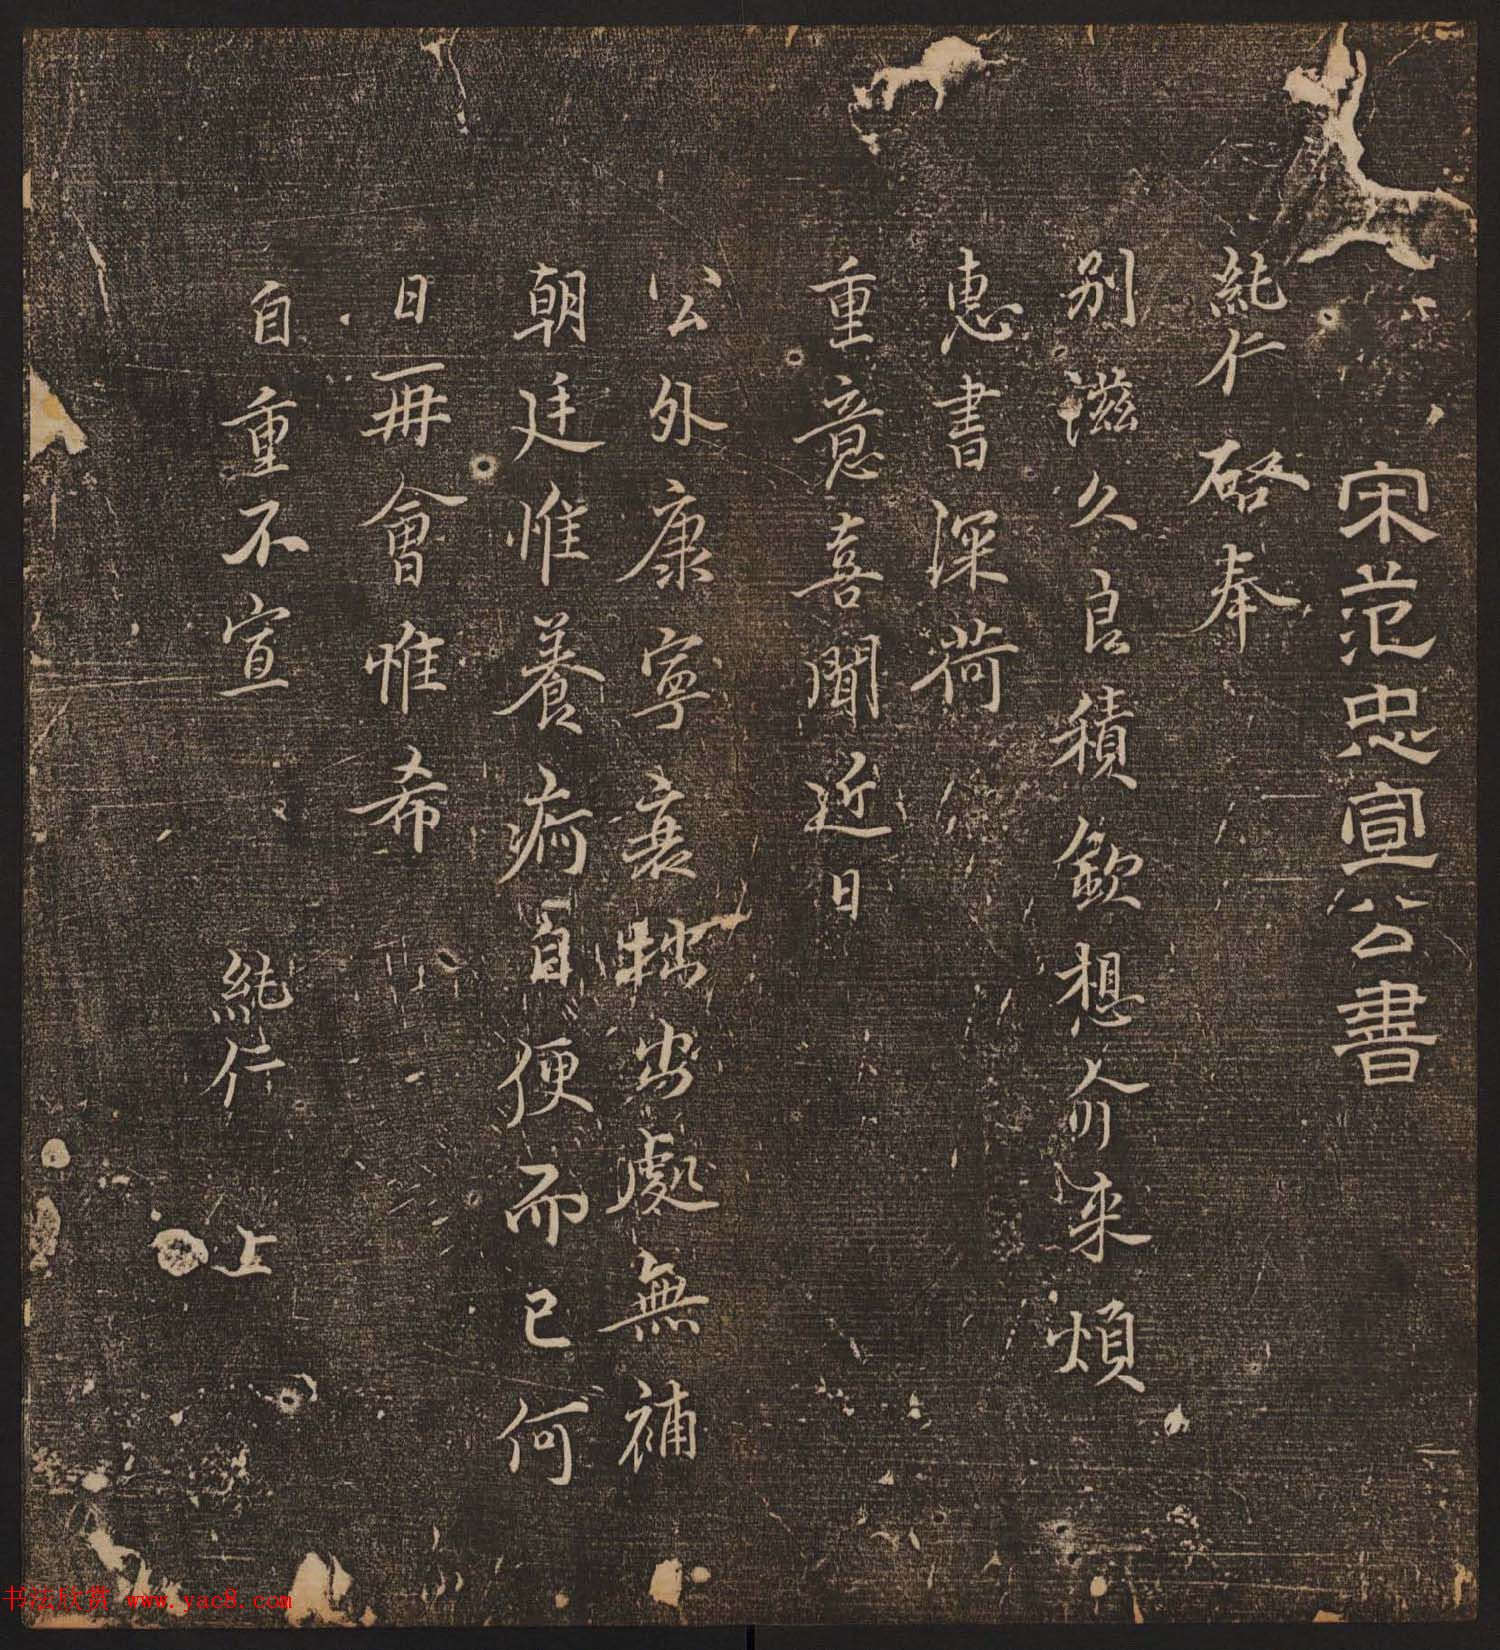 宋范忠宣公書
純仁啓奉
別滋久良積欽想俞来煩
惠書深荷
重意喜聞近日
公外康寧衰拙出處無補
朝廷惟養痾自便而已何
日再會惟希
自重不宣
純仁 上
书法欣赏 www.yac8.com